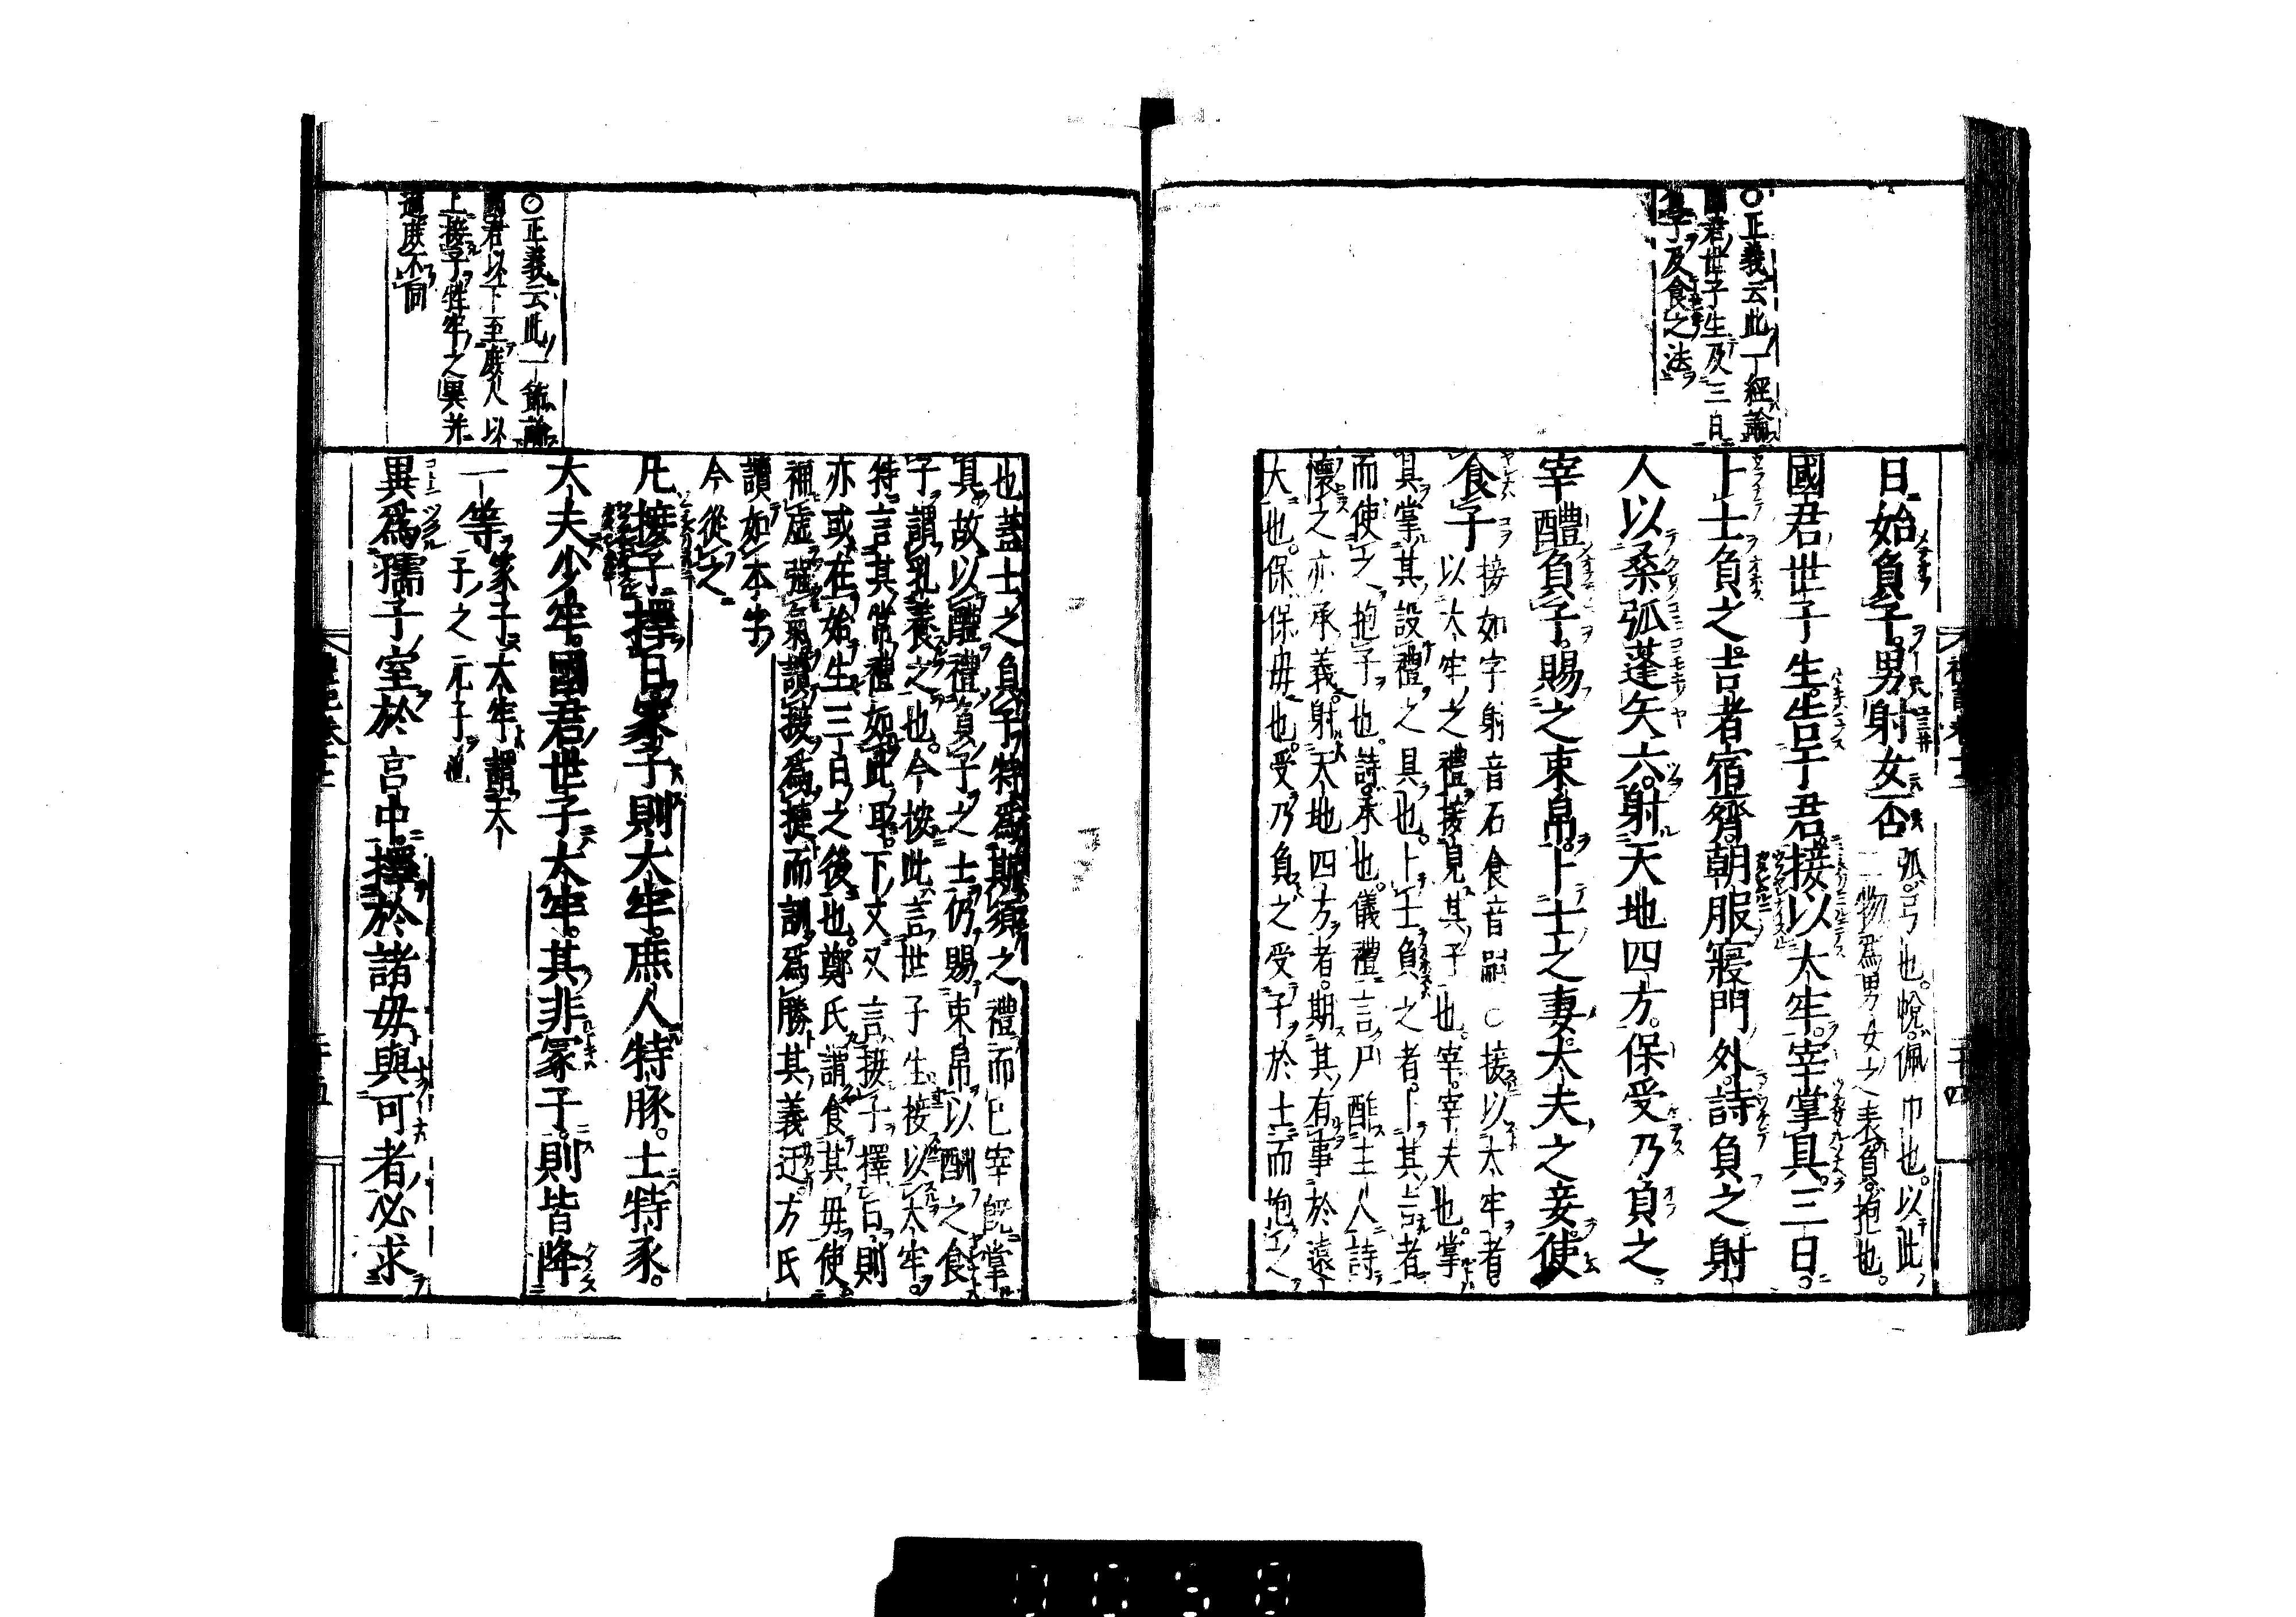 ○正義云此一經論
國君世子生及三日
負子及食之法
日始負子。男射女否
弧。弓也。帨。佩巾也。以此
二物爲男女之表負。抱也。
國君世子生。告于君。接以太牢。宰掌具。三日。
卜士負之。吉者宿齊。朝服寢門外。詩負之。射
人以桑弧蓬矢六。射天地四方。保受乃負之。
宰醴負子。賜之束帛。卜士之妻。大夫之妾。使
食子
接如字射音石食音嗣○接以太牢者。
以太牢之禮接見其子也。宰。宰夫也。掌
其掌其設禮之具也。卜士負之者。卜其吉者
而使之抱子也。詩。承也。儀禮言尸酢主人詩
懷之亦承義。射天地四方者。期其有事於遠
大也。保。保毋也。受乃負之受子於士而抱之
禮記卷十二
二十四
○正義云此一節論
國君以下至庶人以
上接子牲牢之異并
適庶不同
也蓋士之負子特爲斯須之禮而已宰既掌
其故以醴禮負子之士仍賜束帛以酬之食
子謂乳養之也。今按此言世子生接以太牢。
特言其常禮如此耳。下文又言接子擇日則
亦或在始生三日之後也。鄭氏謂食其毋使
補虛強氣讀接爲捷而訓爲勝其義迂方氏
讀如本字
今從之
凡接子擇日冢子則太牢。庶人特豚。士特豕。
大夫少牢。國君世子太牢。其非冢子。則皆降
一等
冢子太牢謂天
子之元子也
異爲孺子室於宮中。擇於諸毋與可者必求
禮記卷十二
二十五